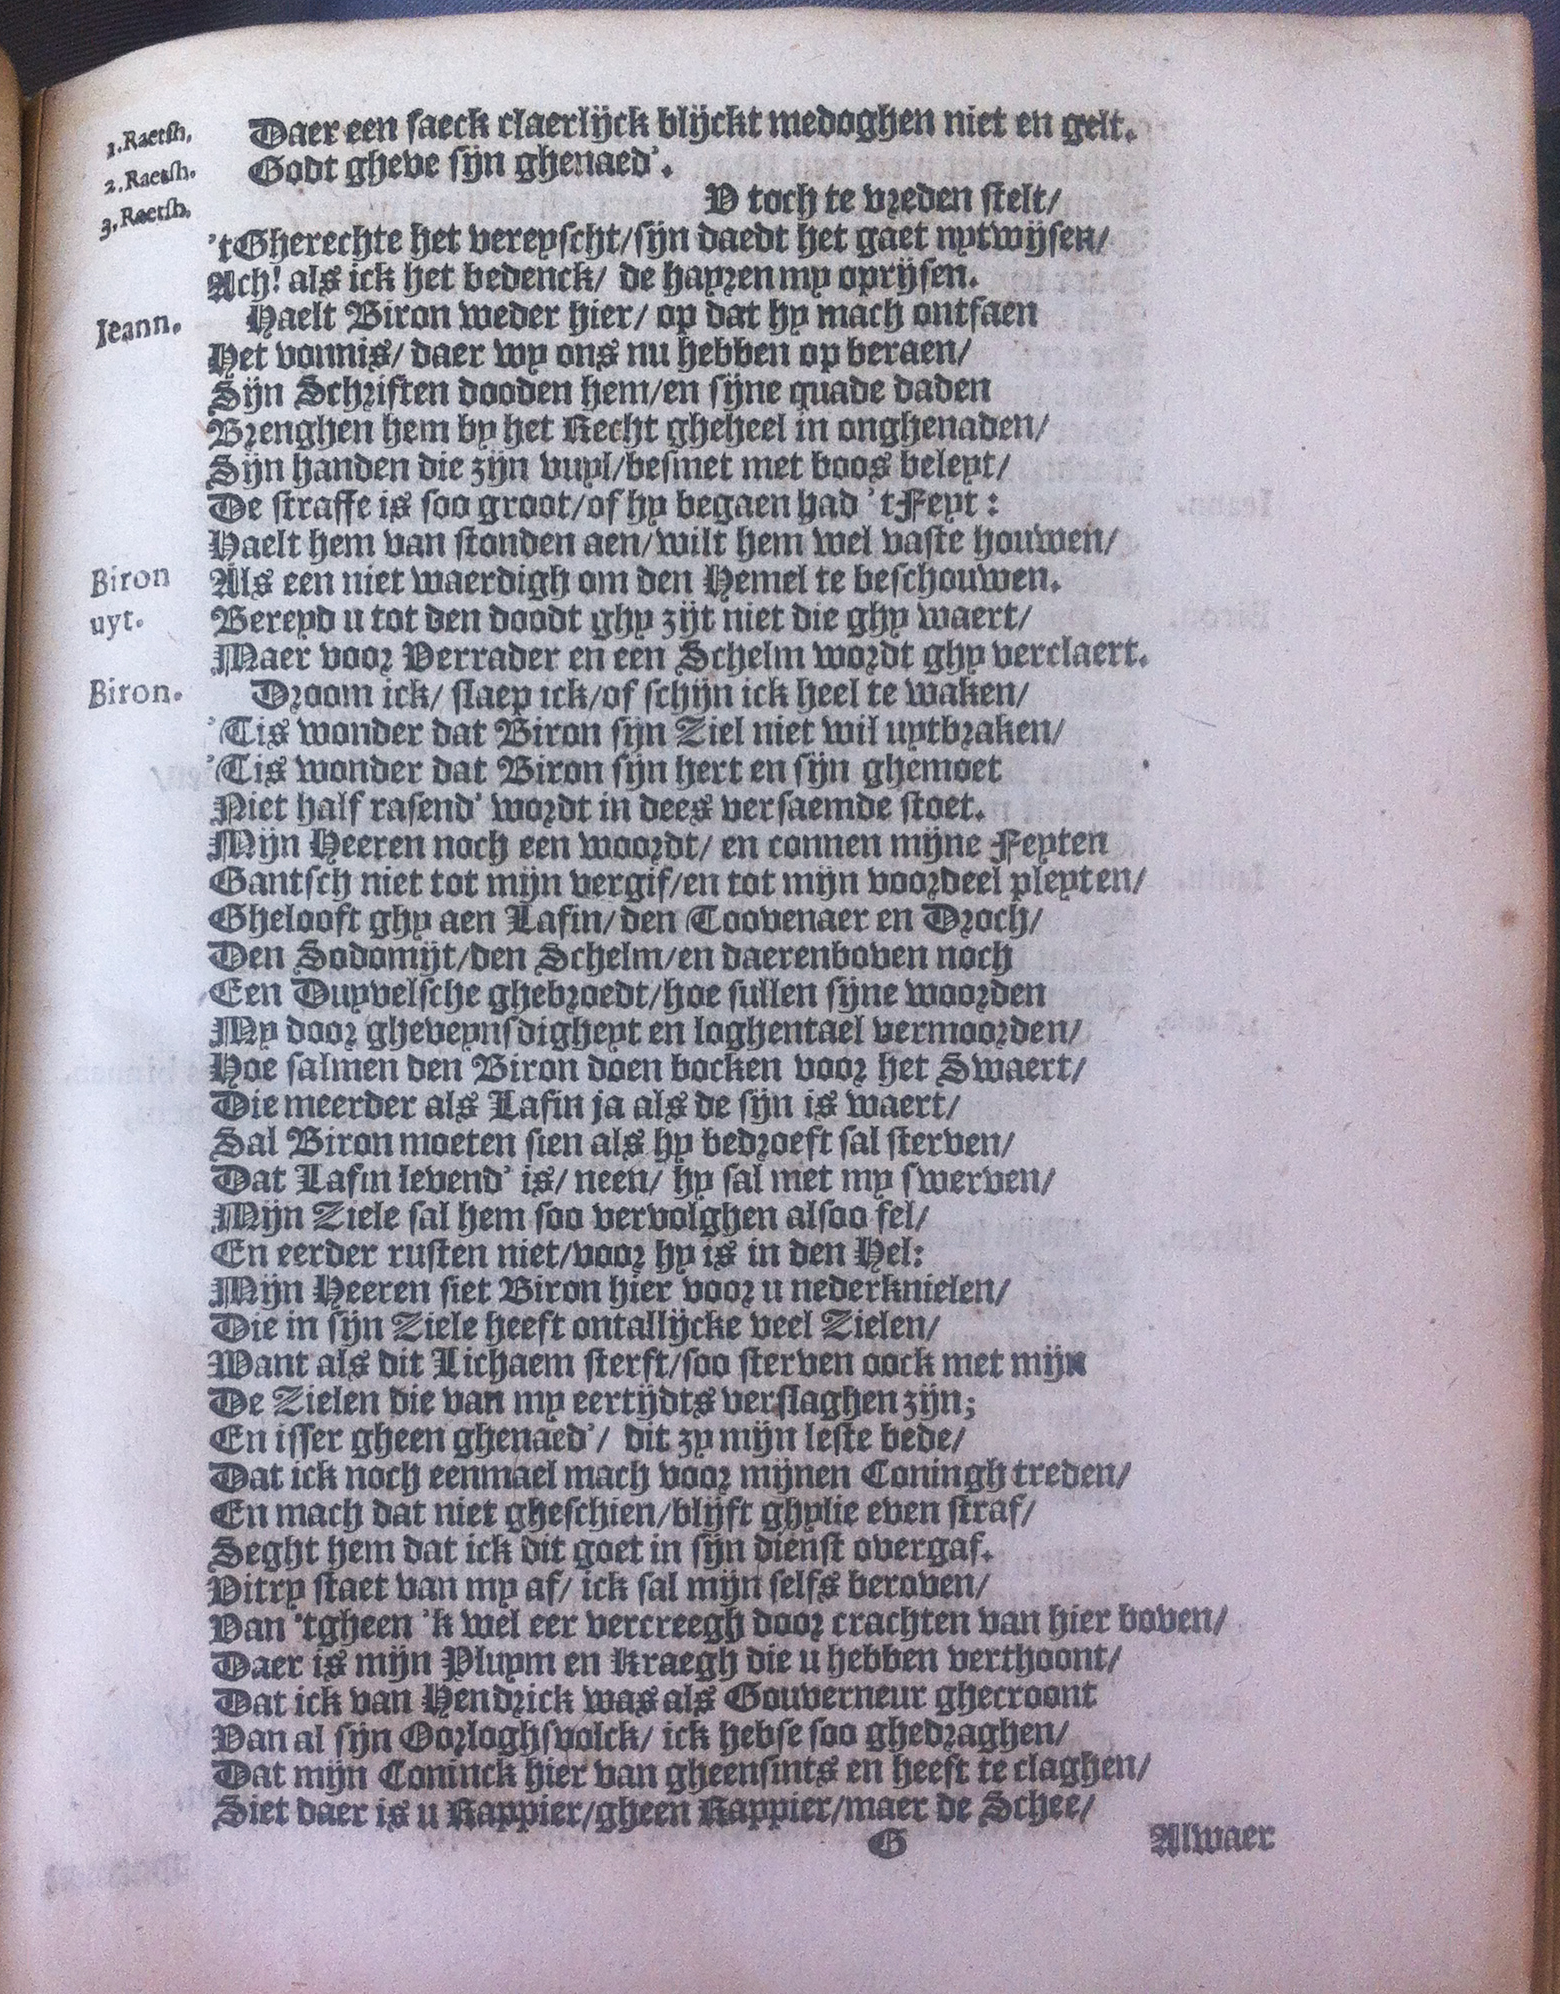 1. Raetsh. Daer een saeck claerlijck blijckt medoghen niet en gelt.
2. Raetsh. Godt gheve sijn ghenaed'.
3. Raetsh. V toch te vreden stelt/
'tGherechte het vereyscht/sijn daedt het gaet nytwijsen/
Ach! als ick het bedenck/ de hayren my oprijsen.
Ieann. Haelt Biron weder hier/ op dat hy mach ontfaen
Het vonnis/ daer wy ons nu hebben op beraen/
Sijn Schriften dooden hem/en sijne quade daden
Brenghen hem by het Recht gheheel in onghenaden/
Sijn handen die zijn vuyl/besmet met boos beleyt/
De straffe is soo groot/of hy begaen had 'tFeyt:
Haelt hem van stonden aen/wilt hem wel vaste houwen/
Biron Als een niet waerdigh om den Hemel te beschouwen.
uyt. Bereyd u tot den doodt ghy zijt niet die ghy waert/
Maer voor Verrader en een Schelm wordt ghy verclaert.
Biron. Droom ick/ slaep ick/of schijn ick heel te waken/
'Tis wonder dat Biron sijn Ziel niet wil uytbraken/
'Tis wonder dat Biron sijn hert en sijn ghemoet
Niet half rasend' wordt in dees versaemde stoet.
Mijn Heeren noch een woordt/ en connen mijne Feyten
Gantsch niet tot mijn vergif/en tot mijn voordeel pleyten/
Ghelooft ghy aen Lafin/den Toovenaer en Droch/
Den Sodomijt/den Schelm/en daerenboven noch
Een Duyvelsche ghebroedt/hoe sullen sijne woorden
My door gheveynsdigheyt en loghentael vermoorden/
Hoe salmen den Biron doen bocken voor het Swaert/
Die meerder als Lafin ja als de sijn is waert/
Sal Biron moeten sien als hy bedroeft sal sterven/
Dat Lafin levend' is/ neen/ hy sal met my swerven/
Mijn Ziele sal hem soo vervolghen alsoo fel/
En eerder rusten niet/voor hy is in den Hel:
Mijn Heeren siet Biron hier voor u nederknielen/
Die in sijn Ziele heeft ontallijcke veel Zielen/
Want als dit Lichaem sterft/soo sterven oock met mijn
De Zielen die van my eertijdts verslaghen zijn;
En isser gheen ghenaed'/ dit zy mijn leste bede/
Dat ick noch eenmael mach voor mijnen Coningh treden/
En mach dat niet gheschien/blijft ghylie even straf/
Seght hem dat ick dit goet in sijn dienst overgaf.
Vitry staet van my af/ ick sal mijn selfs beroven/
Van 'tgheen 'k wel eer vercreegh door crachten van hier boven/
Daer is mijn Pluym en Kraegh die u hebben verthoont/
Dat ick van Hendrick was als Gouverneur ghecroont
Van al sijn Oorloghsvolck/ ick hebse soo ghedraghen/
Dat mijn Coninck hier van gheensints en heeft te claghen/
Siet daer is u Rappier/gheen Rappier/maer de Schee/
G Alwaer